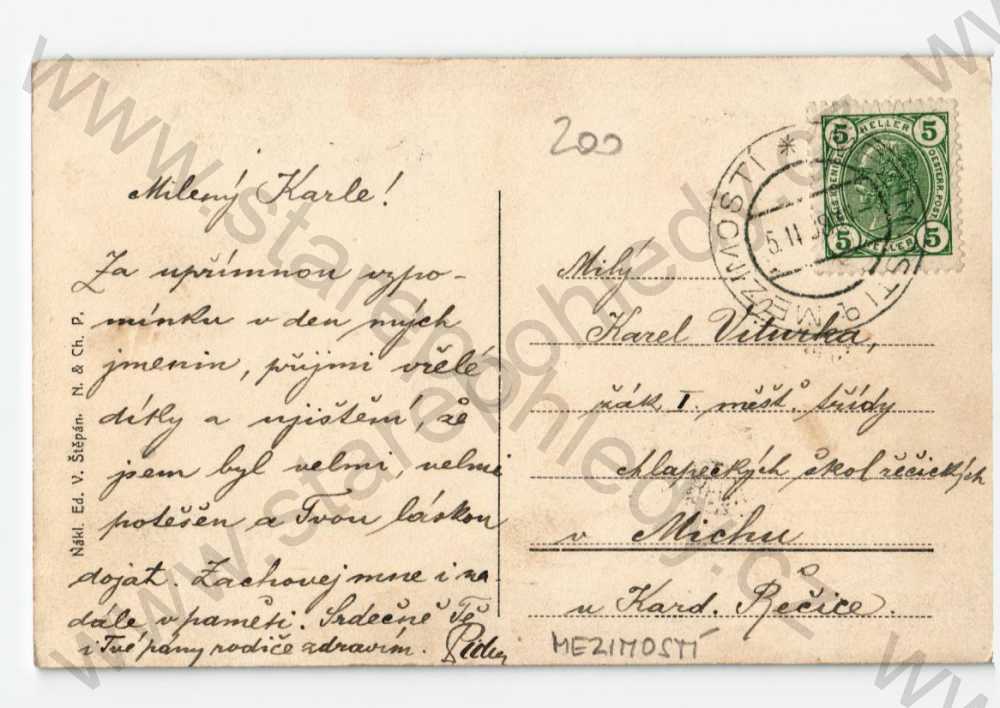 200
5
HELLER
5
5
HELLER
5
MEZIMOSTÍ *
Milený Karle!
Za upřímnou vzpo-
mínku v den mých
jmenin, přijmi vřelé
díky a ujištění, že
jsem byl velmi, velmi
potěšen a Tvou láskou
dojat. Zachovej mne i na-
dále v paměti. Srdečně Tě
i Tvé pány rodiče zdravím.
Nákl. Ed. V. Štěpán. N. & Ch. P.
Milý
Karel Viturka,
žák I. měšť. třídy
chlapeckých škol řečických
v
u Kard. Řečice.
MEZIMOSTÍ
www.starepohledy.cz
www.starepohledy.cz